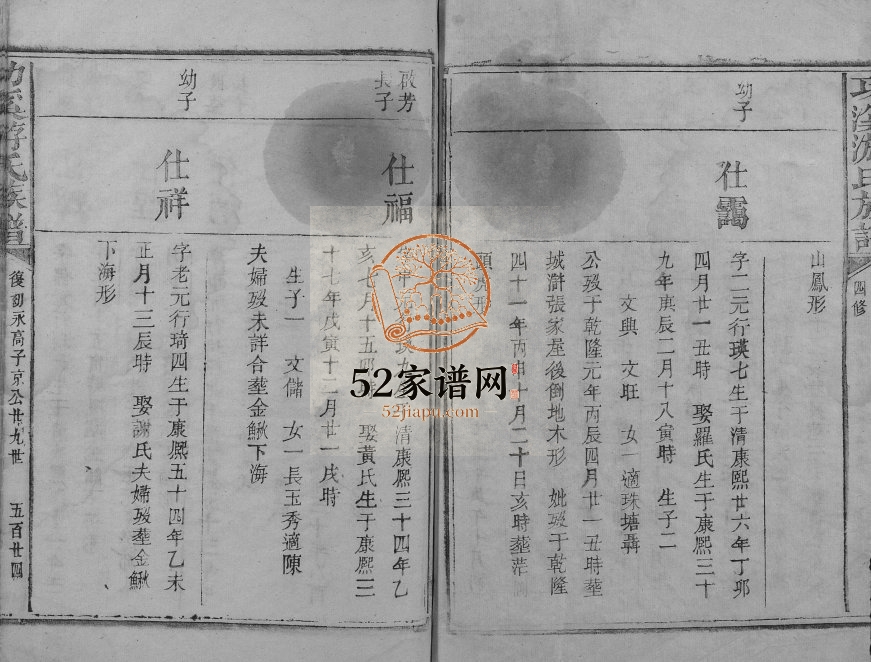 游氏族譜
四修
山鳳形
幼子
仕靄
字二元行瑛七生于清康熙廿六年丁卯
四月廿一丑時 娶羅氏生于康熙三十
九年庚辰二月十八寅時 生子二
文興 文旺 女一適珠塘聶
公歿于乾隆元年丙辰四月廿一丑時葬
城滸張家屋後倒地木形 妣歿于乾隆
四十一年丙申十月二十日亥時葬
形
啟芳
長子
仕福
元行瑛九 清康熙三十四年乙
亥七月十五 娶黃氏生于康熙三
十七年戊寅十二月廿一戌時
生子一 文儲 女一長玉秀適陳
夫婦歿未詳合葬金鰍下海
幼子
仕祥
字老元行琦四生于康熙五十四年乙未
正月十三辰時 娶謝氏夫婦歿葬金鰍
下海形
游氏族譜
復初永高子京公廿九世
五百廿四
52家谱网
52jiapu.com